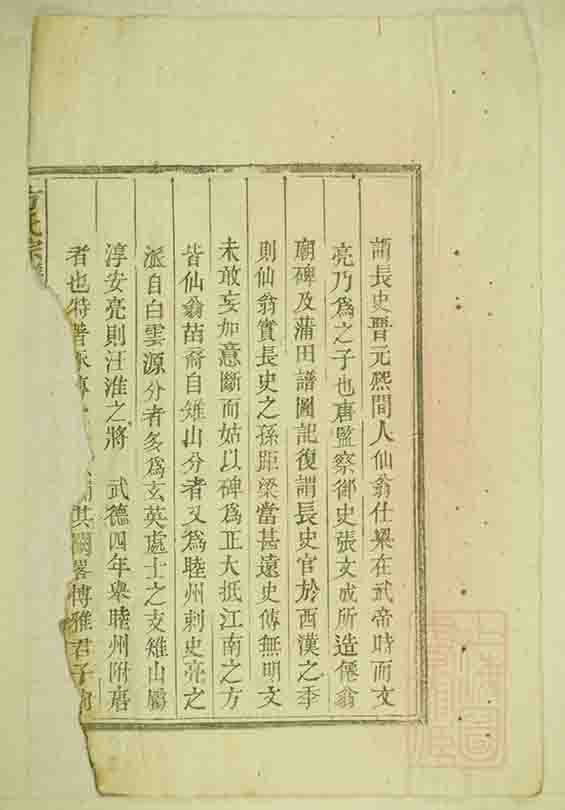 謂長史晉元熙間人仙翁仕梁在武帝時而文
亮乃為之子也唐監察御史張文成所造僊翁
廟碑及蒲田譜圖記復謂長史官於西漢之季
則仙翁實長史之孫距梁當甚遠史傳無明文
未敢妄加意斷而姑以碑為正大抵江南之方
皆仙翁苗裔自雉山分者又為睦州刺史亮之
派自白雲源分者多為玄英處士之支雉山屬
淳安亮則汪淮之將 武德四年舉睦州附唐
者也特著 其闕畧博雅君子
方氏宗譜
上海圖書館藏